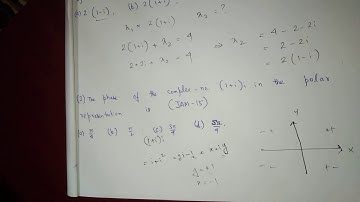 (a) 2(1-i),
λ₁ = 2(1+i) λ₂ = ?
2(1+i) + λ₂ = 4 ⇒ λ₂ = 4 - 2 - 2i
= 2 - 2i
2+2i = 4
= 2(1-i)
(2) The phase of the complex no. (1+i)i in the polar
representation is (JAM-15)
(a) π/4 (b) π/2 (c) 3π/4 (d) 5π/4
(1+i)i
= i+i² = i-1 = x+iy
y = +1
x = -1
y
-+ ++
x
-- +-